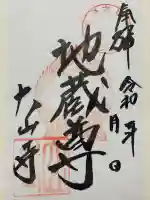 奉拝 令和 年 月 日
地蔵尊
大山寺